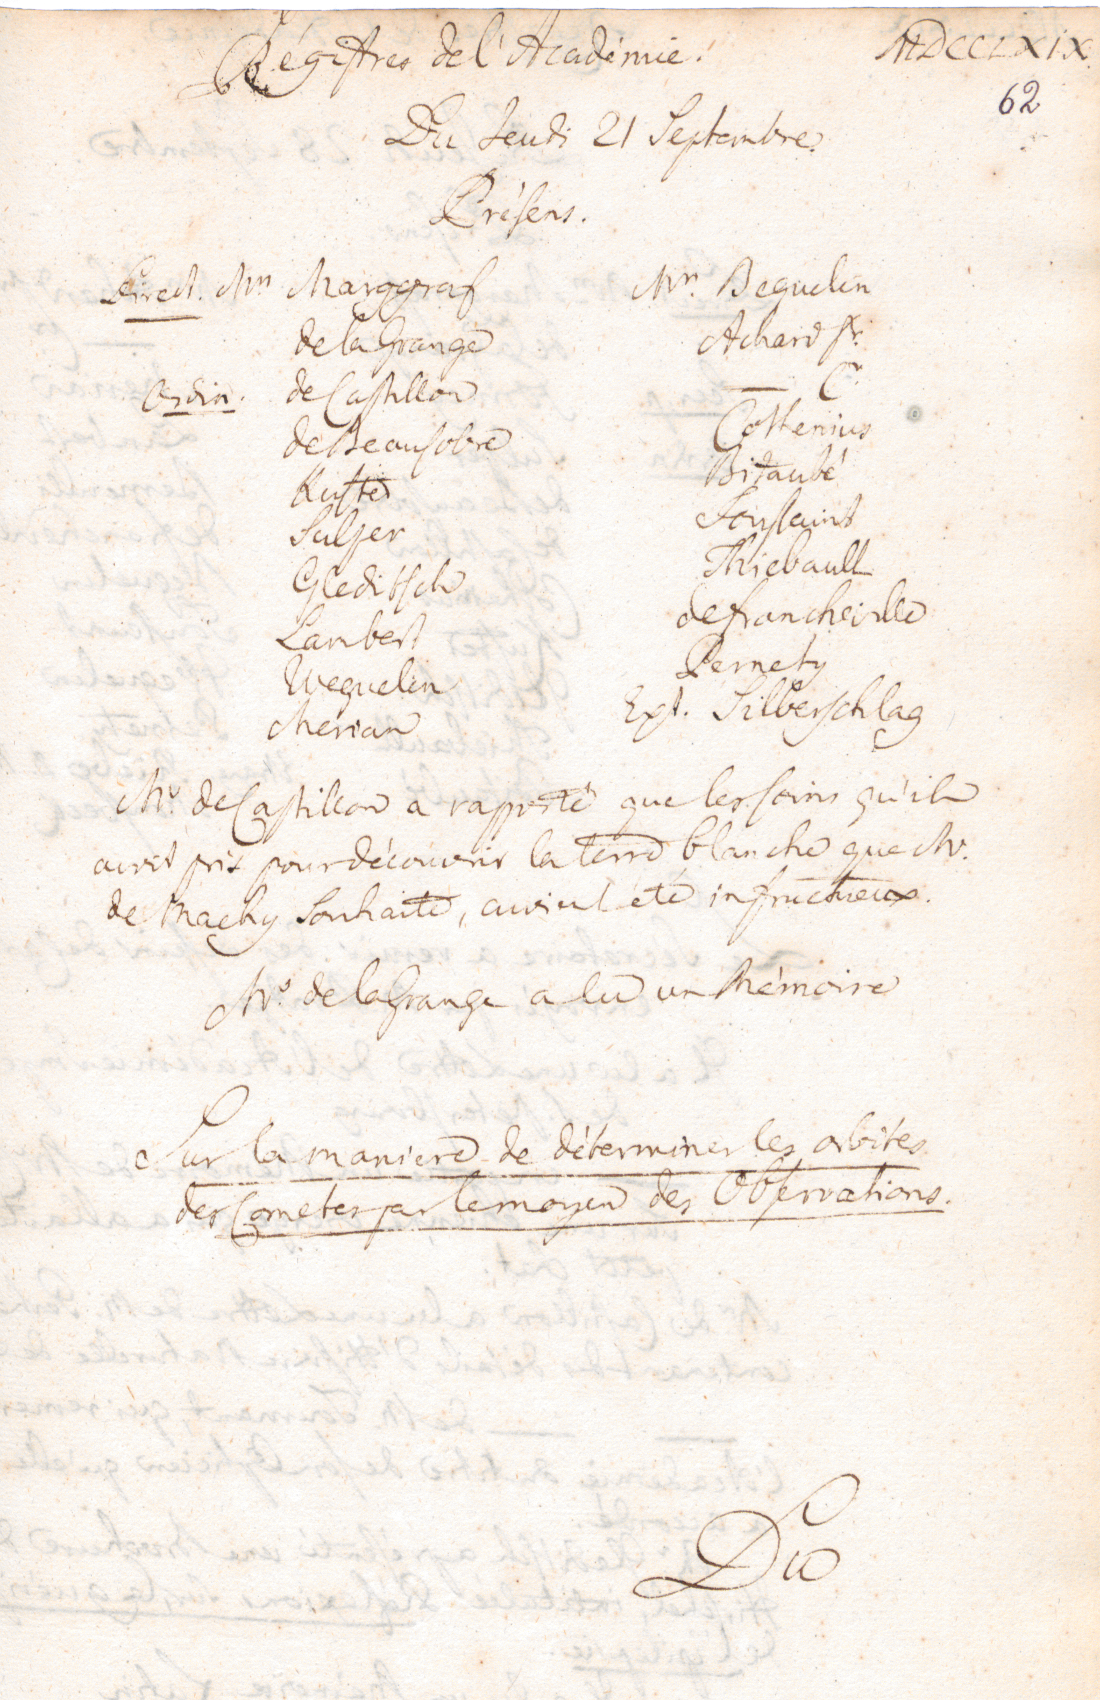 Régistres de l'Académie.
MDCCLXIX.
62
Du Jeudi 21 Septembre.
Présens.
Direct. Mrs Marggraf
de la Grange
Ordin. de Castillon
de Beausobre
Kuster
Sulzer
Gleditsch
Lambert
Weguelin
Merian
Mrs. Beguelin
Achard Fr.
— C.
Cothenius
Bitaubé
Toussaint
Thiebault
de Francheville
Pernety
Ext. Silberschlag
Mr. de Castillon a rapporté que les soins qu'il
avoit pris pour découvrir la terre blanche que Mr.
de Machy souhaite, avoient été infructueux.
Mr. de la Grange a lu un Mémoire
Sur la maniere de déterminer les orbites
des Cometes par le moyen des Observations.
Du